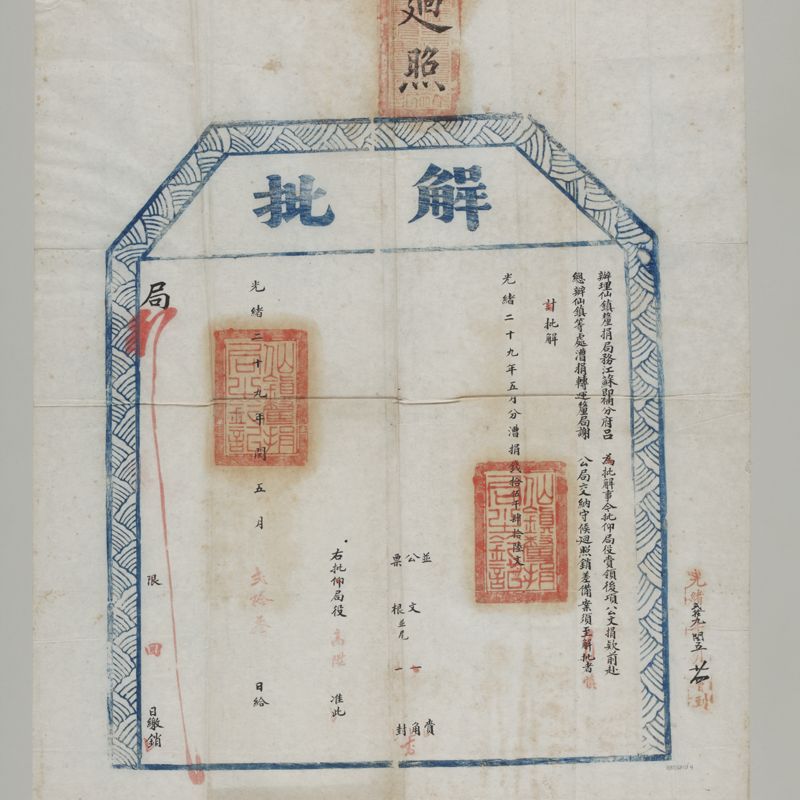 廻照
解批
辦理仙鎮釐捐局務江蘇即補分府呂 為批解事今批仰局役賫領後項公文捐款前赴
總辦仙鎮等處漕捐轉運釐局謝 公局交納守候廻照銷差備案須至解批者
計批解
光緒二十九年五月分漕捐錢拾 千肆拾陸文
並 賫
公文一角
票根並尾一封
右批仰局役高陞 准此
光緒二十九年閏五月 日給
局
限 回 日繳銷
光緒 九 閏五